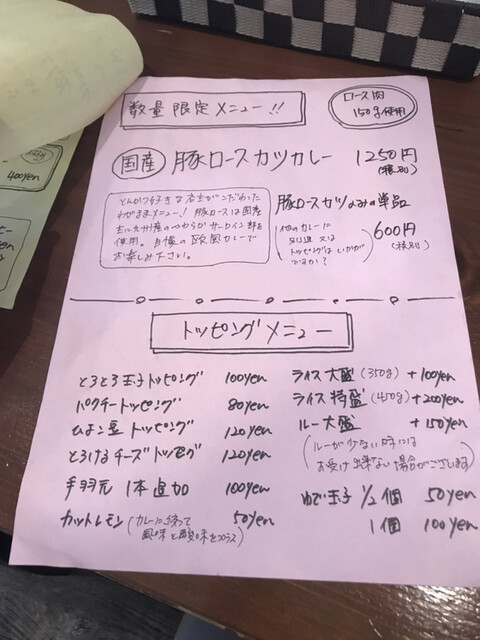 数量限定メニュー!!
ロース肉
150g使用
国産 豚ロースカツカレー 1250円
(税別)
とんかつ好きな店主がこだわった
わがままメニュー! 豚ロースは国産
主に九州産のやわらかサーロイン部を
使用。自慢の欧風カレーで
お楽しみ下さい。
豚ロースカツのみの単品
(他のカレーに
別皿又は
トッピングはいかが
ですか?)
600円
(税別)
400yen
トッピングメニュー
とろとろ玉子トッピング 100yen
パクチートッピング 80yen
ひよこ豆トッピング 120yen
とろけるチーズトッピング 120yen
手羽元 1本追加 100yen
カットレモン (カレーに絞って 50yen
風味と酸味をプラス)
ライス大盛(350g) +100yen
ライス特盛(450g) +200yen
ルー大盛 +150yen
(ルーが少ない時には
お受け出来ない場合がございます)
ゆで玉子 1/2個 50yen
1個 100yen